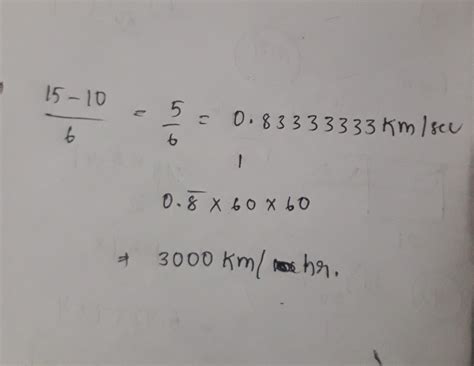 15-10/6 = 5/6 = 0.83333333 Km/sec
0.8̅ x 60 x 60
⇒ 3000 Km/ hr.